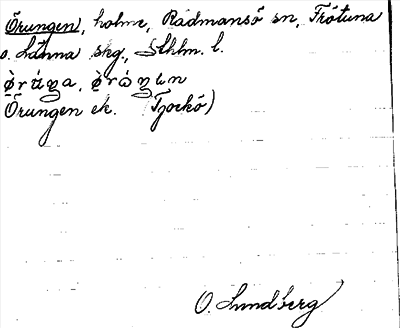 Örungen, holme, Rådmansö sn, Frötuna
o. Länna skg., Sthlm. l.
Örungen ek. Tjockö)
O. Lundberg